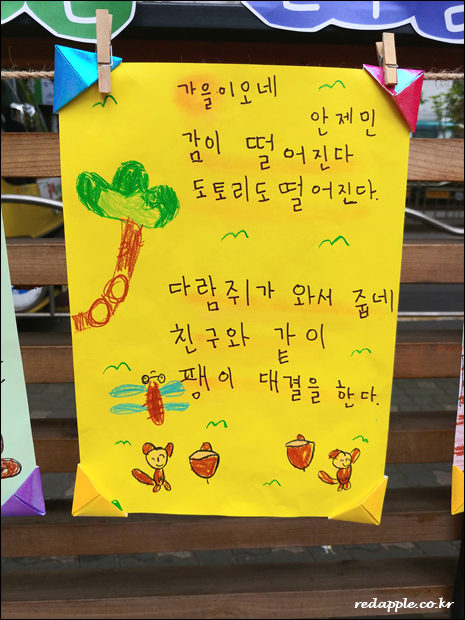 가을이오네
안제민
감이 떨어진다
도토리도떨어진다.
다람쥐가 와서 줍네
친구와 같이
팽이 대결을 한다.
redapple.co.kr